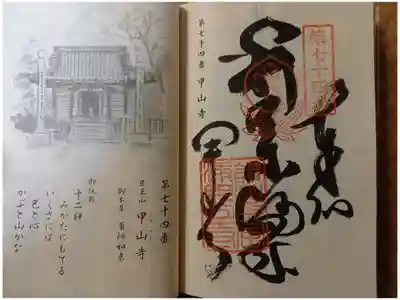 第七十四番
甲山寺
第七十四番 甲山寺
第七十四番
医王山 甲山寺
御本尊 薬師如来
御詠歌
十二神
みかたにもてる
いくさには
己と心
かぶと山かな